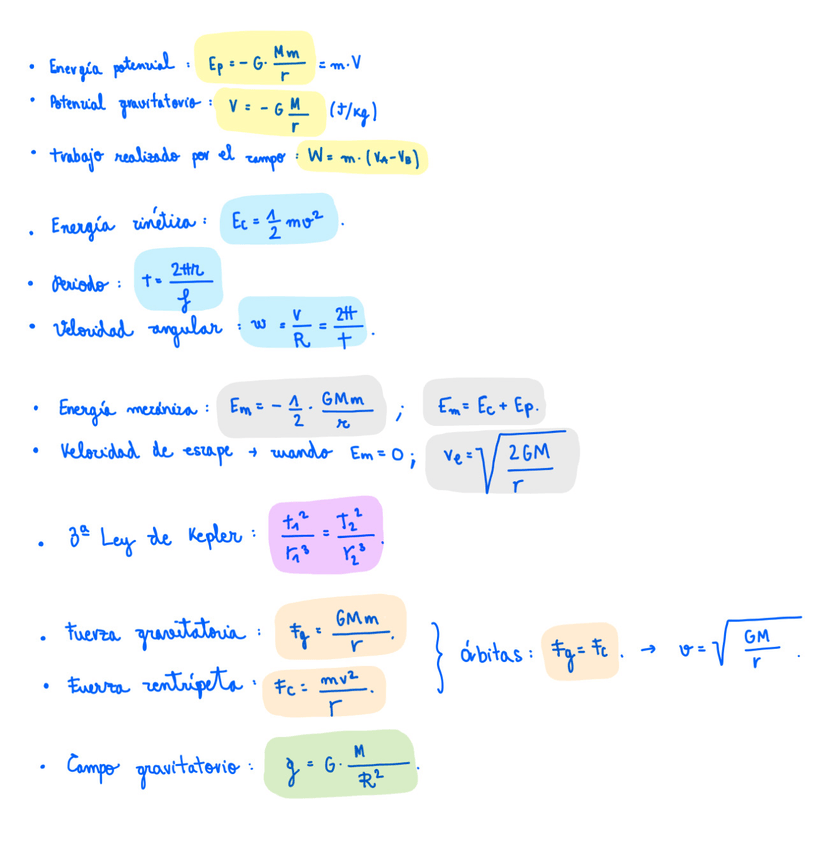 • Energía potencial : Ep = - G · Mm/r = m · V
• Potencial gravitatorio : V = - G M/r (J/kg)
• Trabajo realizado por el campo : W = m · (VA - VB)
• Energía cinética : Ec = 1/2 mv².
• Periodo : T = 2πr/f
• Velocidad angular : w = V/R = 2π/T.
• Energía mecánica : Em = - 1/2 · GMm/r ; Em = Ec + Ep.
• Velocidad de escape → cuando Em = 0 ; ve = √(2GM/r)
• 3ª Ley de Kepler : T1²/r1³ = T2²/r2³.
• Fuerza gravitatoria : Fg = GMm/r.
• Fuerza centrípeta : Fc = mv²/r.
} órbitas : Fg = Fc. → v = √(GM/r).
• Campo gravitatorio : g = G · M/R².